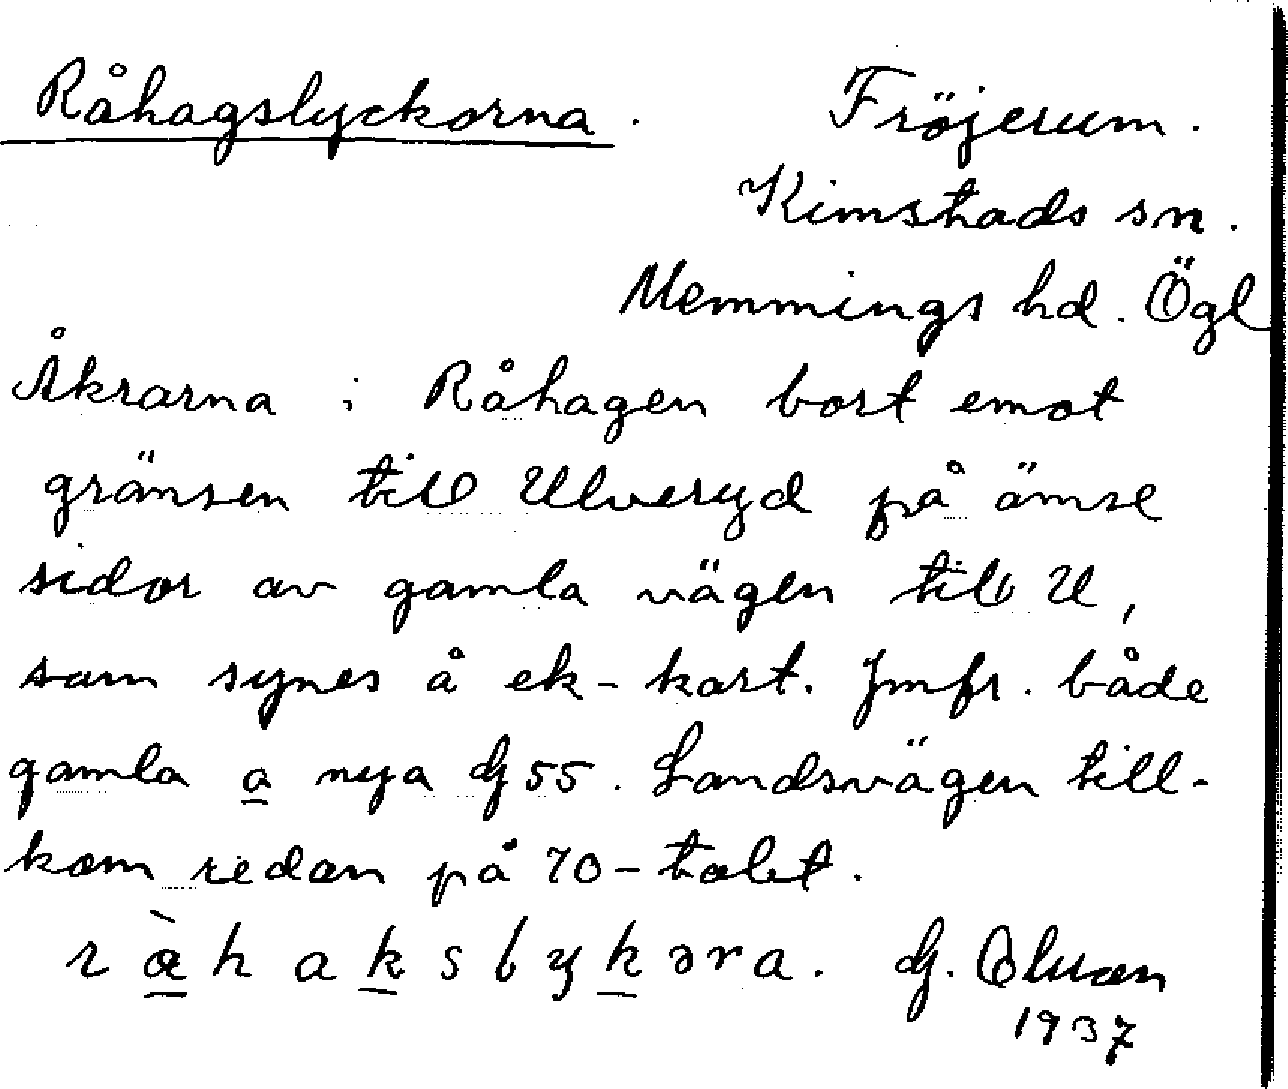 Råhagslyckorna. Fröjerum.
Kimstads sn.
Memmings hd. Ögl
Åkrarna i Råhagen bort emot
gränsen till Ulveryd på ömse
sidor av gamla vägen till U,
som synes å ek-kart. Jmfr. både
gamla a nya dj 55. Landsvägen till-
kom redan på 70-talet.
ràhakslykəra. dj. Olson
1937